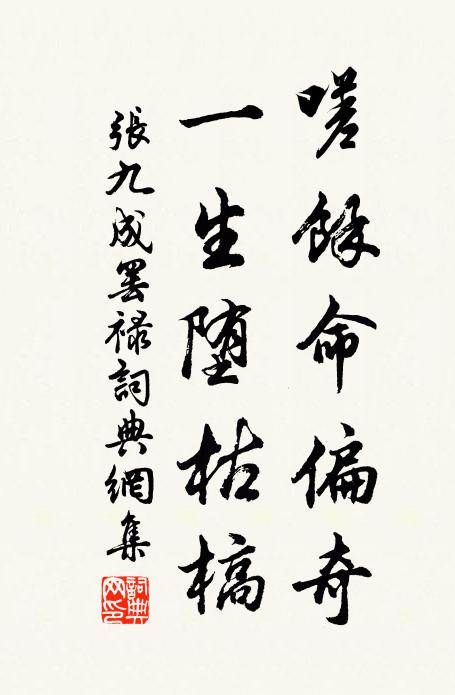 嗟餘命偏奇
一生堕枯槁
張九成罢禄詞典網集
詞典網印